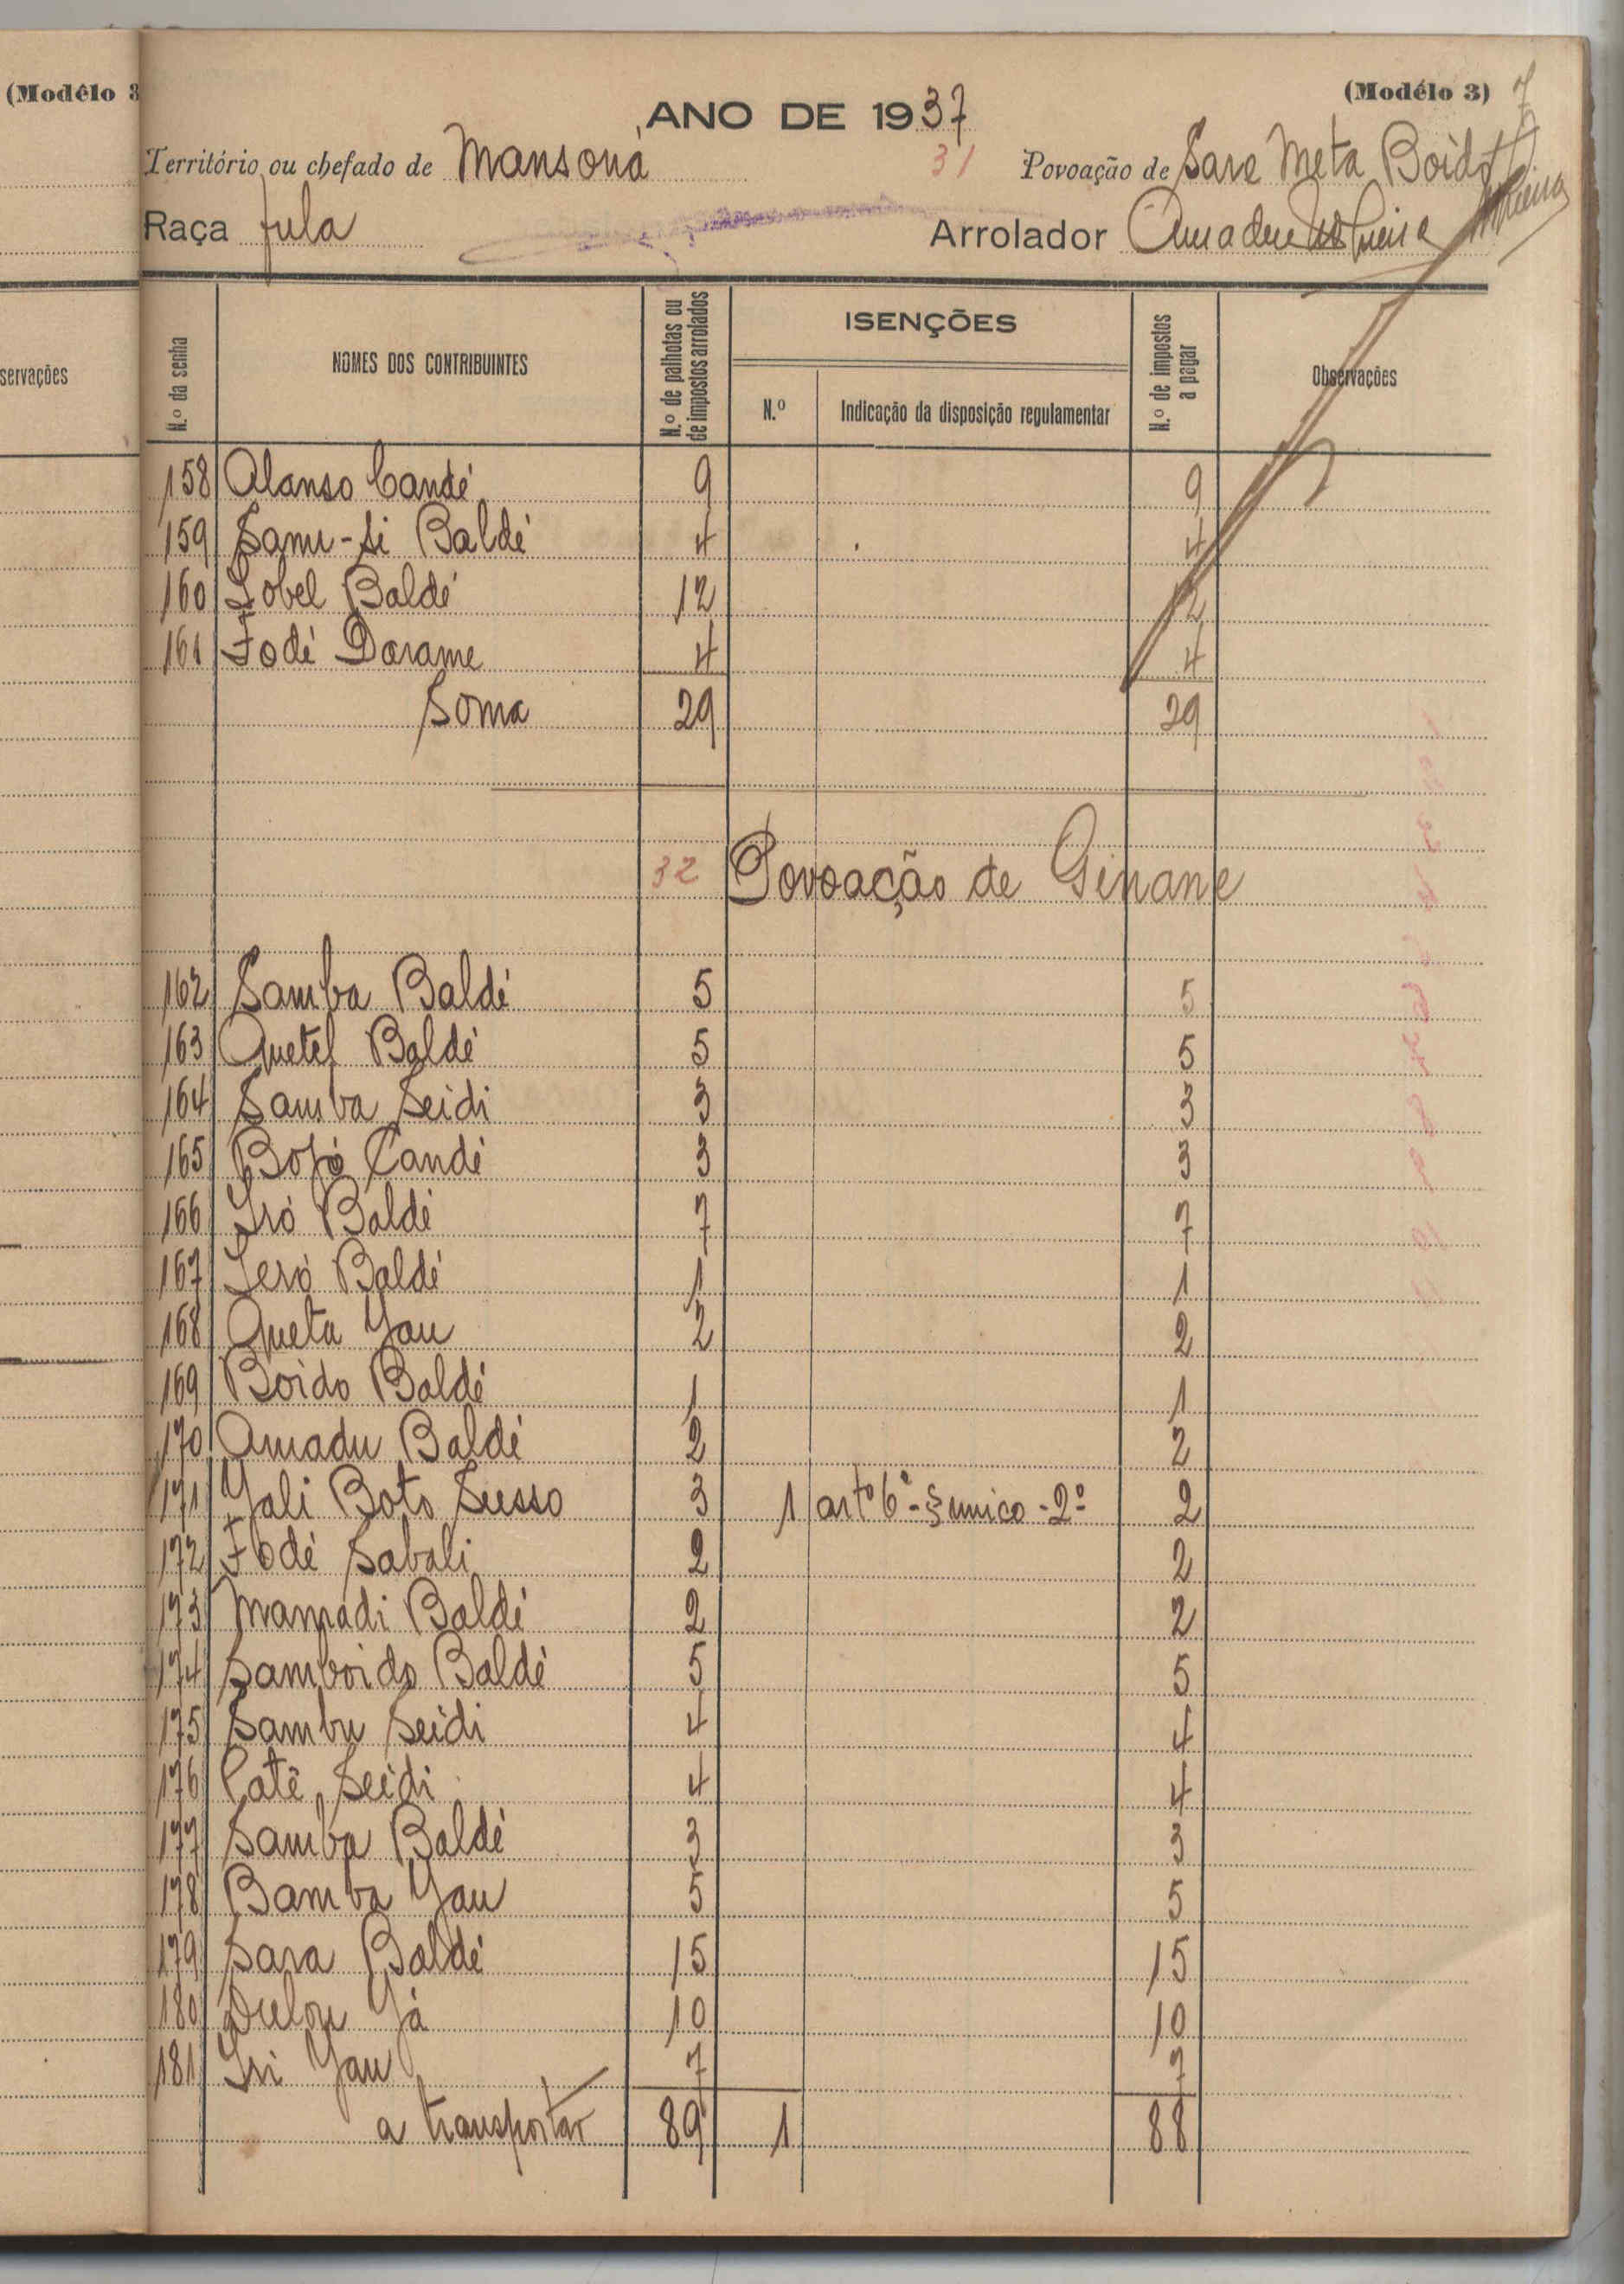 (Modêlo 3
servações
(Modêlo 3) 7
ANO DE 1937
Território ou chefado de Mansoná 31 Povoação de Sare Meta Boido
Raça fula Arrolador Amadeu
N.º da senha NOMES DOS CONTRIBUINTES N.º de palhotas ou de impostos arrolados ISENÇÕES N.º de impostos a pagar Observações
N.º Indicação da disposição regulamentar
158 Alanso Candé 9 9
159 Samu-si Baldé 4 4
160 Iobel Baldé 12 12
161 Fodé Darame 4 4
Soma 29 29
32 Povoação de Ginane
162 Samba Baldé 5 5
163 Quetel Baldé 5 5
164 Samba Seidi 3 3
165 Bojó Candé 3 3
166 Iró Baldé 7 7
167 Ieró Baldé 1 1
168 Queta Yau 2 2
169 Boido Baldé 1 1
170 Amadu Baldé 2 2
171 Yali Boto Susso 3 1 artº 6º - § unico - 2º 2
172 Fodé Sabali 2 2
173 Mamadi Baldé 2 2
174 Samboido Baldé 5 5
175 Sambu Seidi 4 4
176 Patê Seidi 4 4
177 Samba Baldé 3 3
178 Bamba Yau 5 5
179 Sara Baldé 15 15
180 Dulou Já 10 10
181 Iri Yau 7 7
a transportar 89 1 88